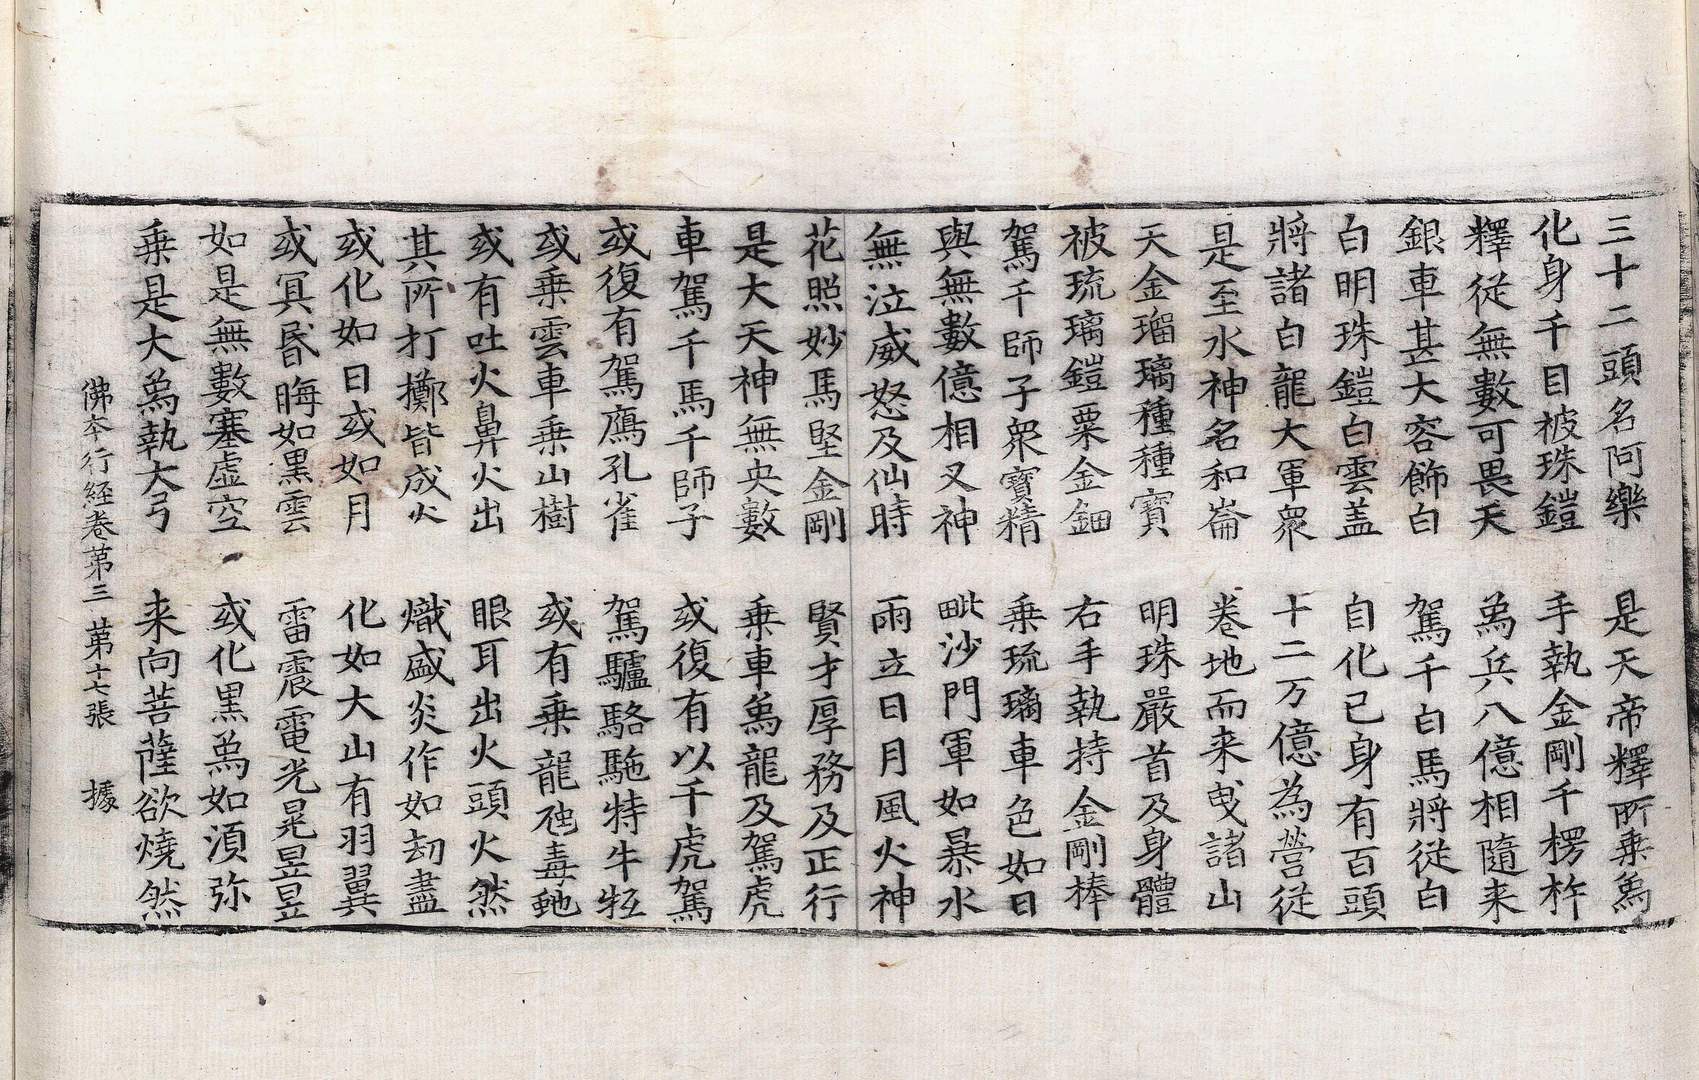 三十二頭名阿樂　是天帝釋所乗象
化身千目被珠鎧　手執金剛千楞杵
釋從無數可畏天　象兵八億相隨来
銀車甚大容飾白　駕千白馬將從白
白明珠鎧白雲蓋　自化已身有百頭
將諸白龍大軍衆　十二万億為營從
是至水神名和崙　卷地而来曵諸山
天金瑠璃種種寶　明珠嚴首及身體
被琉璃鎧粟金鈿　右手執持金剛棒
駕千師子衆寶精　乗琉璃車色如日
與無數億相叉神　毗沙門軍如暴水
無泣威怒及仙時　雨立日月風火神
花照妙馬堅金剛　賢才厚務及正行
是大天神無央數　乗車象龍及駕虎
車駕千馬千師子　或復有以千虎駕
或復有駕鷹孔雀　駕驢駱駞特牛牸
或乗雲車乗山樹　或有乗龍虺毒虵
或有吐火鼻火出　眼耳出火頭火然
其所打擲皆成火　熾盛炎作如劫盡
或化如日或如月　化如大山有羽翼
或冥昬晦如黒雲　雷震電光晃昱昱
如是無數塞虛空　或化黒象如湏弥
乗是大象執大弓　来向菩薩欲燒然
佛夲行経卷第三　第十七張　據